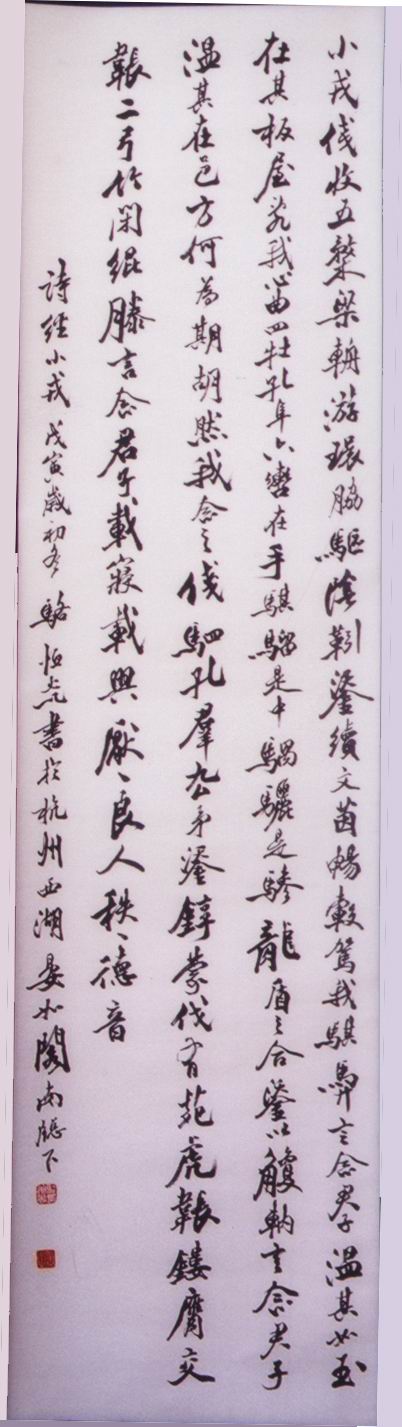 小戎俴收五楘梁輈游環脇驅陰靷鋈續文茵暢轂駕我騏馵言念君子温其如玉
在其板屋亂我心曲四牡孔阜六轡在手騏騮是中騧驪是驂龍盾之合鋈以觼軜言念君子
温其在邑方何為期胡然我念之俴駟孔羣厹矛鋈錞蒙伐有苑虎韔鏤膺交
韔二弓竹閉緄縢言念君子載寢載興厭、良人秩、德音
詩經小戎 戊寅歲初冬 駱恒光書於杭州西湖晏如閣南牕下